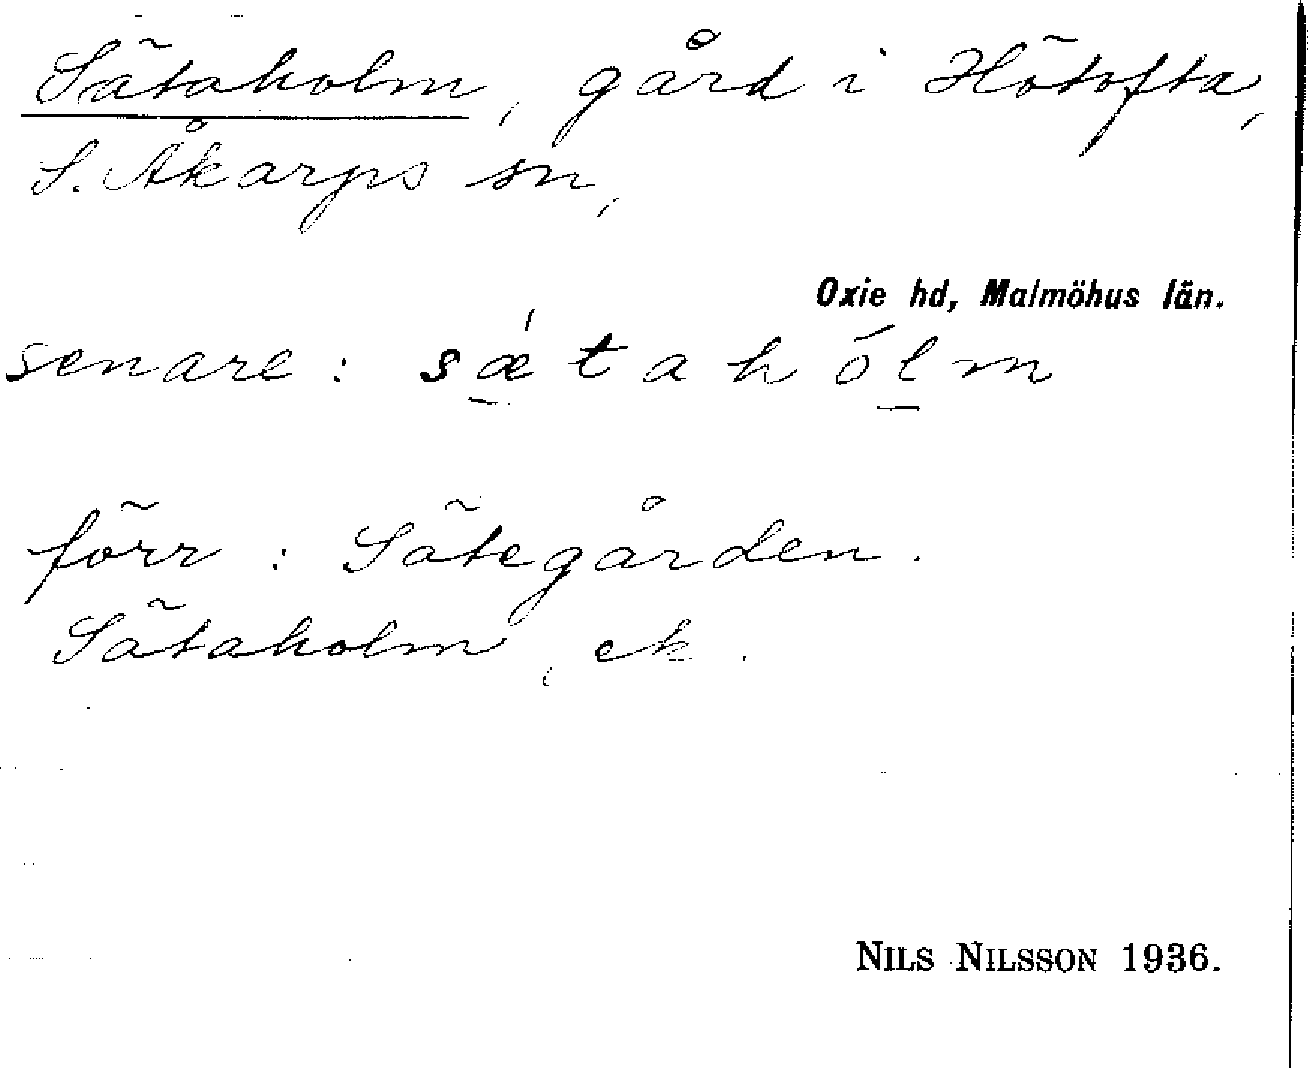 Sätaholm, gård i Hötofta,
S. Åkarps sn,
Oxie hd, Malmöhus län.
senare: sǽtahólm
förr: Sätegården.
Sätaholm, ek.
NILS NILSSON 1936.